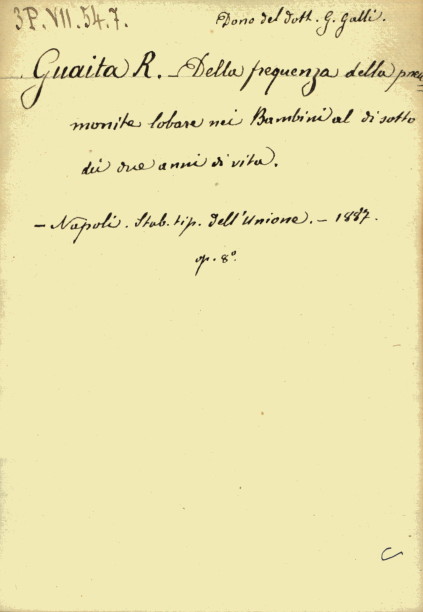 3P.VII.54.7.
Dono del dott. G. Galli.
Guaita R. - Della frequenza della pneu
monite lobare nei Bambini al disotto
dei due anni di vita.
- Napoli. Stab. tip. dell'Unione. - 1887.
op. 8°.
C